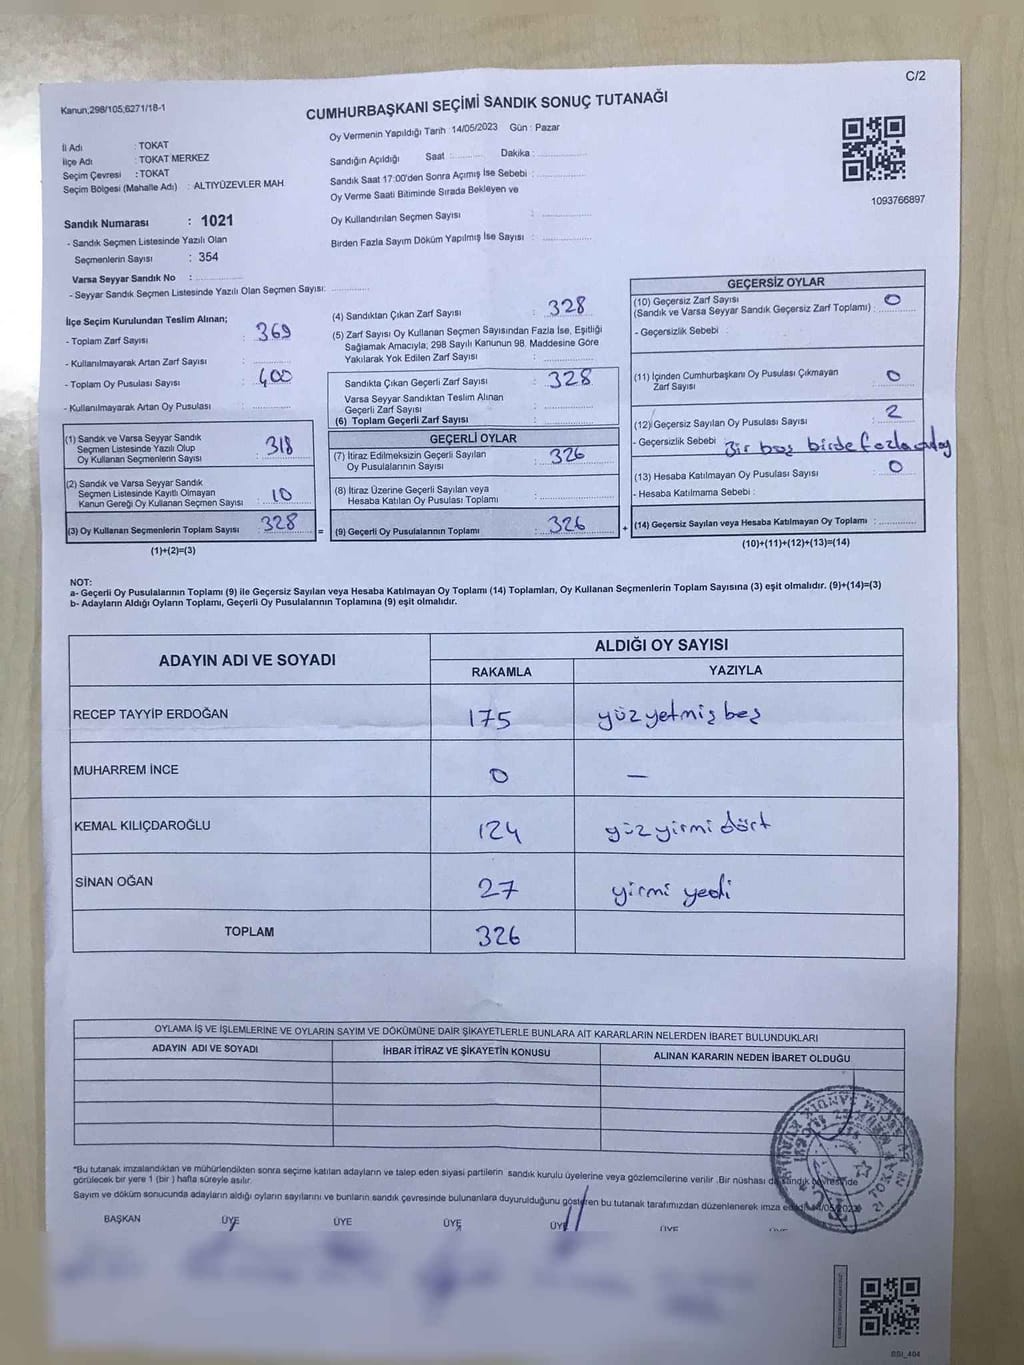 C/2
Kanun;298/105;6271/18-1
CUMHURBAŞKANI SEÇİMİ SANDIK SONUÇ TUTANAĞI
Oy Vermenin Yapıldığı Tarih : 14/05/2023 Gün : Pazar
İl Adı : TOKAT
İlçe Adı : TOKAT MERKEZ
Seçim Çevresi : TOKAT
Seçim Bölgesi (Mahalle Adı) : ALTIYÜZEVLER MAH
Sandığın Açıldığı Saat : Dakika :
Sandık Saat 17:00'den Sonra Açımış İse Sebebi :
Oy Verme Saati Bitiminde Sırada Bekleyen ve
Oy Kullandırılan Seçmen Sayısı :
Birden Fazla Sayım Döküm Yapılmış İse Sayısı :
1093766897
Sandık Numarası : 1021
- Sandık Seçmen Listesinde Yazılı Olan
Seçmenlerin Sayısı : 354
Varsa Seyyar Sandık No :
- Seyyar Sandık Seçmen Listesinde Yazılı Olan Seçmen Sayısı:
İlçe Seçim Kurulundan Teslim Alınan;
- Toplam Zarf Sayısı : 369
- Kullanılmayarak Artan Zarf Sayısı :
- Toplam Oy Pusulası Sayısı : 400
- Kullanılmayarak Artan Oy Pusulası :
(1) Sandık ve Varsa Seyyar Sandık
Seçmen Listesinde Yazılı Olup
Oy Kullanan Seçmenlerin Sayısı : 318
(2) Sandık ve Varsa Seyyar Sandık
Seçmen Listesinde Kayıtlı Olmayan
Kanun Gereği Oy Kullanan Seçmen Sayısı : 10
(3) Oy Kullanan Seçmenlerin Toplam Sayısı : 328
(1)+(2)=(3)
(4) Sandıktan Çıkan Zarf Sayısı : 328
(5) Zarf Sayısı Oy Kullanan Seçmen Sayısından Fazla İse, Eşitliği
Sağlamak Amacıyla; 298 Sayılı Kanunun 98. Maddesine Göre
Yakılarak Yok Edilen Zarf Sayısı :
Sandıkta Çıkan Geçerli Zarf Sayısı : 328
Varsa Seyyar Sandıktan Teslim Alınan
Geçerli Zarf Sayısı :
(6) Toplam Geçerli Zarf Sayısı :
GEÇERLİ OYLAR
(7) İtiraz Edilmeksizin Geçerli Sayılan
Oy Pusulalarının Sayısı : 326
(8) İtiraz Üzerine Geçerli Sayılan veya
Hesaba Katılan Oy Pusulası Toplamı :
= (9) Geçerli Oy Pusulalarının Toplamı : 326
GEÇERSİZ OYLAR
(10) Geçersiz Zarf Sayısı
(Sandık ve Varsa Seyyar Sandık Geçersiz Zarf Toplamı) : 0
- Geçersizlik Sebebi :
(11) İçinden Cumhurbaşkanı Oy Pusulası Çıkmayan
Zarf Sayısı : 0
(12) Geçersiz Sayılan Oy Pusulası Sayısı : 2
- Geçersizlik Sebebi : Bir boş birde fazla
(13) Hesaba Katılmayan Oy Pusulası Sayısı : 0
- Hesaba Katılmama Sebebi :
+ (14) Geçersiz Sayılan veya Hesaba Katılmayan Oy Toplamı :
(10)+(11)+(12)+(13)=(14)
NOT:
a- Geçerli Oy Pusulalarının Toplamı (9) ile Geçersiz Sayılan veya Hesaba Katılmayan Oy Toplamı (14) Toplamları, Oy Kullanan Seçmenlerin Toplam Sayısına (3) eşit olmalıdır. (9)+(14)=(3)
b- Adayların Aldığı Oyların Toplamı, Geçerli Oy Pusulalarının Toplamına (9) eşit olmalıdır.
ADAYIN ADI VE SOYADI ALDIĞI OY SAYISI
RAKAMLA YAZIYLA
RECEP TAYYİP ERDOĞAN 175 yüz yetmiş beş
MUHARREM İNCE 0 —
KEMAL KILIÇDAROĞLU 124 yüz yirmi dört
SİNAN OĞAN 27 yirmi yedi
TOPLAM 326
OYLAMA İŞ VE İŞLEMLERİNE VE OYLARIN SAYIM VE DÖKÜMÜNE DAİR ŞİKAYETLERLE BUNLARA AİT KARARLARIN NELERDEN İBARET BULUNDUKLARI
ADAYIN ADI VE SOYADI İHBAR İTİRAZ VE ŞİKAYETİN KONUSU ALINAN KARARIN NEDEN İBARET OLDUĞU
*Bu tutanak imzalandıktan ve mühürlendikten sonra seçime katılan adayların ve talep eden siyasi partilerin sandık kurulu üyelerine veya gözlemcilerine verilir .Bir nüshası da sandık çevresinde
görülecek bir yere 1 (bir ) hafta süreyle asılır.
Sayım ve döküm sonucunda adayların aldığı oyların sayılarını ve bunların sandık çevresinde bulunanlara duyurulduğunu gösteren bu tutanak tarafımızdan düzenlenerek imza edildi. 14/05/2023
BAŞKAN ÜYE ÜYE ÜYE ÜYE ÜYE ÜYE
BSI_404